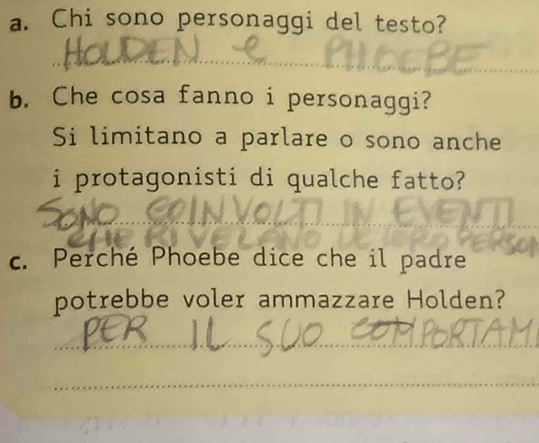 a. Chi sono personaggi del testo?
HOLDEN e PHOEBE
b. Che cosa fanno i personaggi?
Si limitano a parlare o sono anche
i protagonisti di qualche fatto?
SONO COINVOLTI IN EVENTI
CHE RIVELANO LE LORO PERSON
c. Perché Phoebe dice che il padre
potrebbe voler ammazzare Holden?
PER IL SUO COMPORTAM